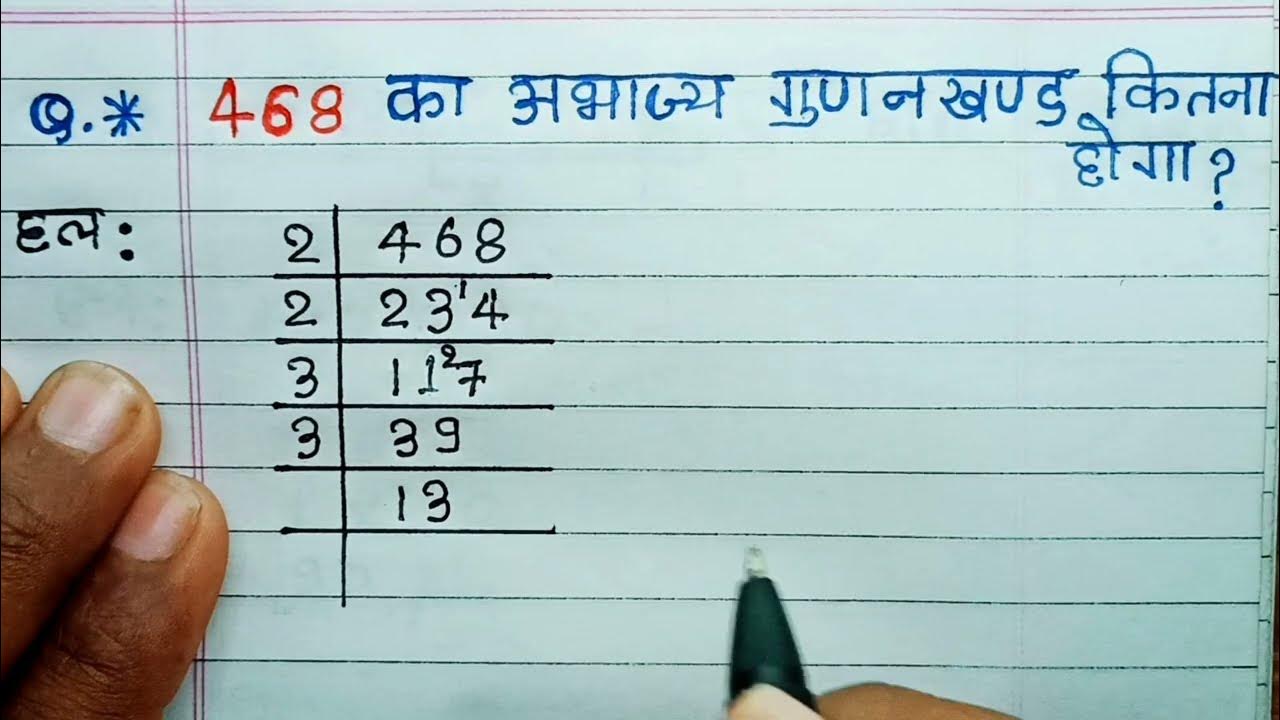 Q.* 468 का अभाज्य गुणनखण्ड कितना
होगा?
हल:
2 | 468
2 | 23¹4
3 | 11²7
3 | 39
| 13